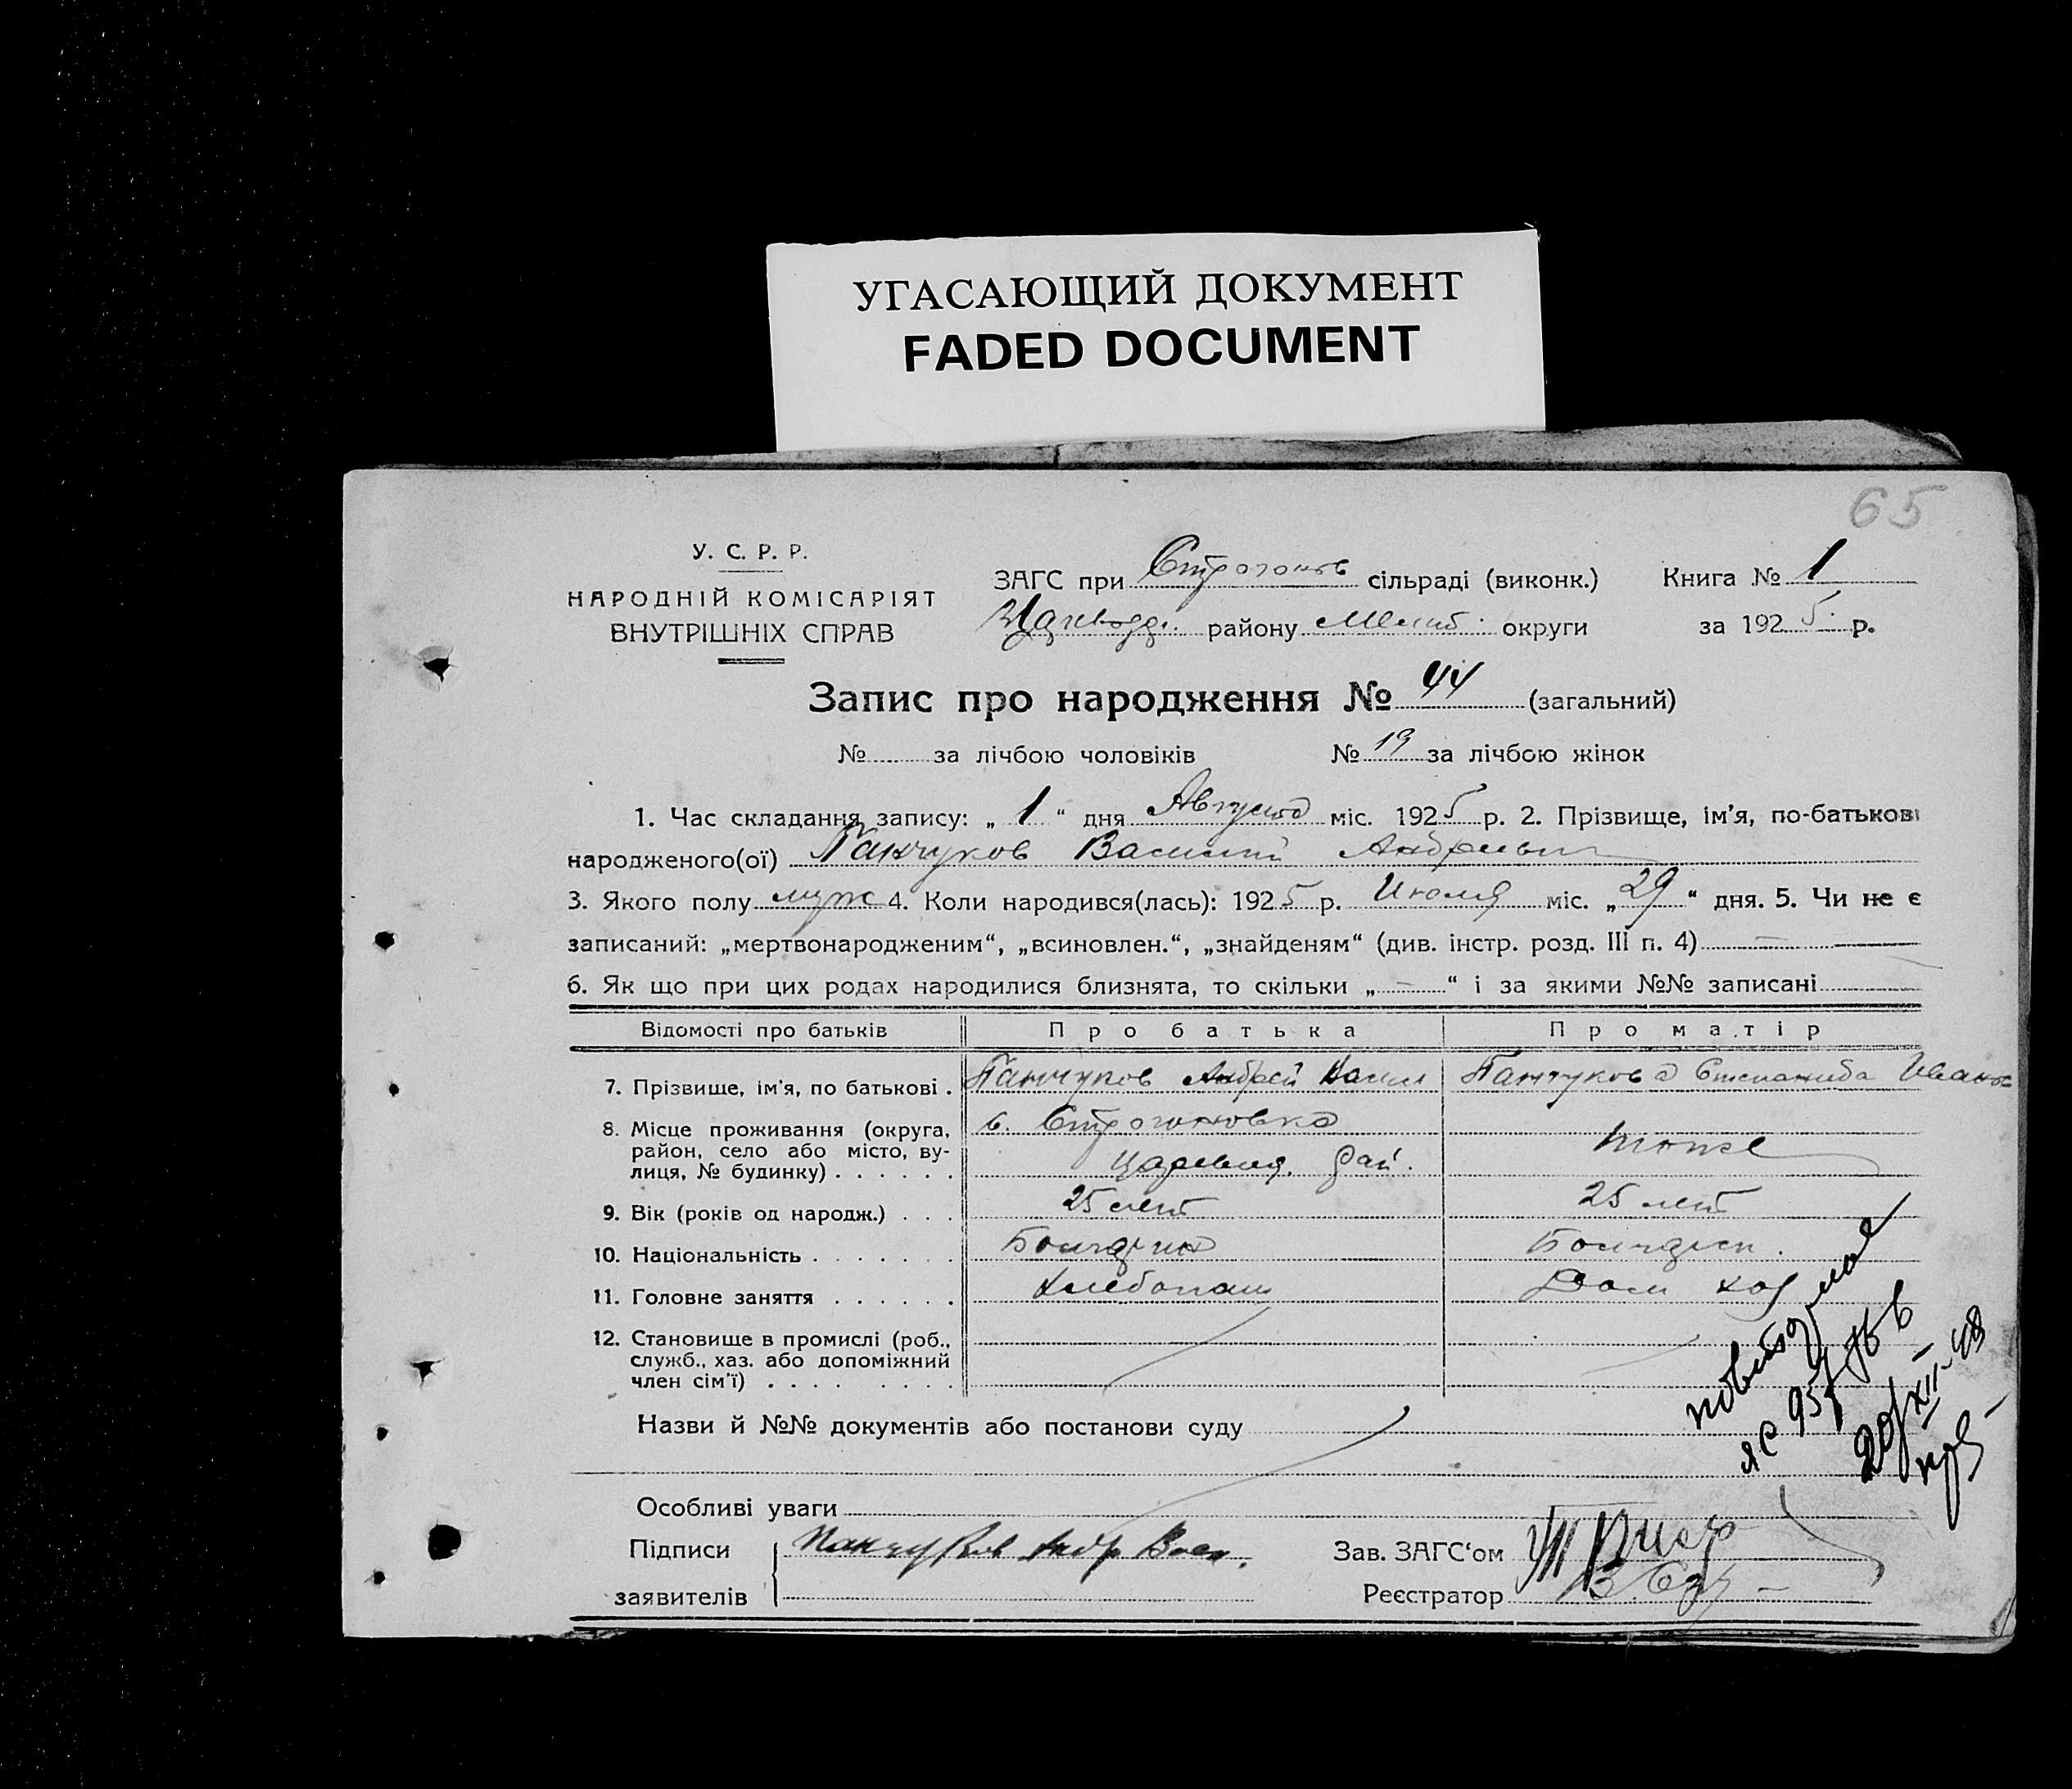 УГАСАЮЩИЙ ДОКУМЕНТ
FADED DOCUMENT
65
У. С. Р. Р.
НАРОДНІЙ КОМІСАРІЯТ
ВНУТРІШНІХ СПРАВ
ЗАГС при Строганов сільраді (виконк.) Книга № 1
району Мелит. округи за 1925 р.
Запис про народження № 44 (загальний)
№ за лічбою чоловіків № 19 за лічбою жінок
1. Час складання запису: „ 1 “ дня Августа міс. 1925 р. 2. Прізвище, ім'я, по-батькові
народженого(ої) Панчуков Василий Андреевич
3. Якого полу муж 4. Коли народився(лась): 1925 р. Июля міс. „ 29 “ дня. 5. Чи не є
записаний: „мертвонародженим“, „всиновлен.“, „знайденям“ (див. інстр. розд. III п. 4) —
6. Як що при цих родах народилися близнята, то скільки „ — “ і за якими №№ записані
Відомості про батьків Про батька Про матір
7. Прізвище, ім'я, по батькові . Панчуков Андрей Васил Панчукова Степанида Иванов
8. Місце проживання (округа, район, село або місто, вулиця, № будинку) . . . . . . с. Строгоновка
рай. тоже
9. Вік (років од народж.) . . . 25 лет 25 лет
10. Національність . . . . . . . Болгарин Болгарк.
11. Головне заняття . . . . . . Хлебопаш Дом хоз
12. Становище в промислі (роб., служб., хаз. або допоміжний член сім'ї) . . . . . . . . .
Назви й №№ документів або постанови суду
20/XII-48
Особливі уваги
Підписи Панчуков Андр Вас.
заявителів
Зав. ЗАГС‘ом
Реєстратор